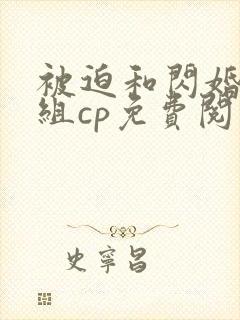 被迫和閃婚
組cp免費閱
史寧昌